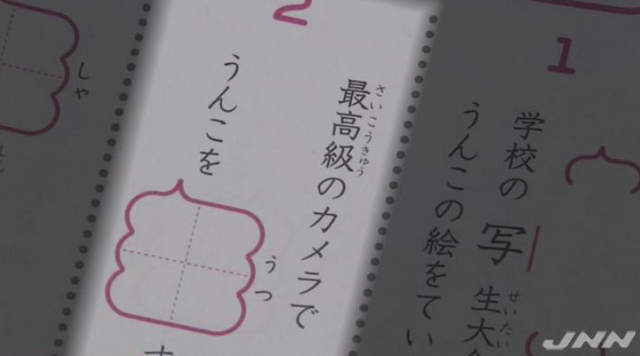 1
学校の写生大
せいたい
うんこの絵をてい
2
最高級のカメラで
さいこうきゅう
うんこを
うつ
しゃ
JNN